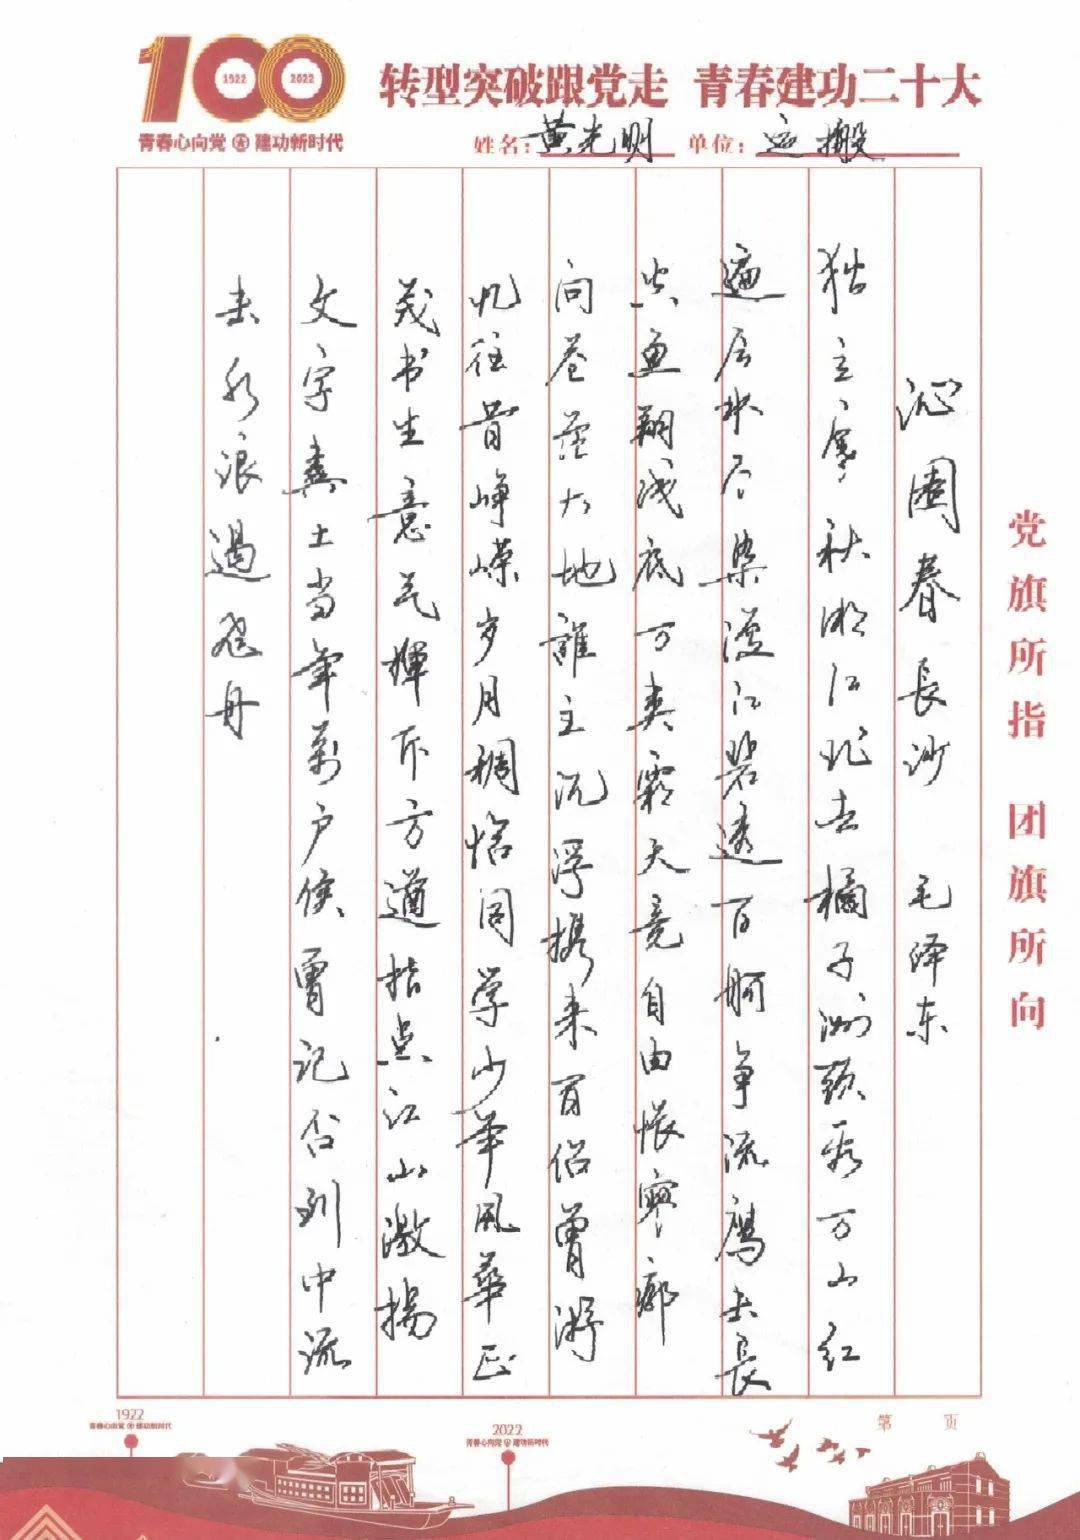 100
1922 2022
青春心向党 建功新时代
转型突破跟党走 青春建功二十大
姓名：黄光明 单位：运搬
沁園春 長沙 毛泽东
独立寒秋湘江北去橘子洲頭看万山红
遍层林尽染漫江碧透百舸争流鹰击長
空鱼翔浅底万类霜天竞自由怅寥廓
问苍茫大地誰主沉浮携来百侣曾游
忆往昔峥嵘岁月稠恰同学少年風華正
茂书生意气揮斥方遒指点江山激揚
文字粪土当年萬户侯曾记否到中流
击水浪遏飞舟
党旗所指 团旗所向
第 页
1922
青春心向党 建功新时代
2022
青春心向党 建功新时代